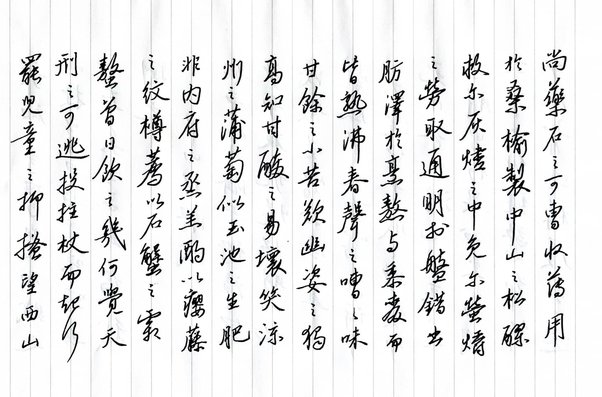 尚藥石之可曹收薄用
於桑榆製中山之松醪
救尔灰燼之中免尔螢爝
之勞取通明於盤錯出
肪澤於烹熬与黍麥而
皆熟沸春聲之嘈々味
甘餘之小苦歎幽姿之獨
高知甘酸之易壞笑涼
州之蒲萄似玉池之生肥
非内府之烝羔酌以癭藤
之紋樽薦以石蟹之霜
螯曾日飲之幾何覺天
刑之可逃投拄杖而起行
罷兒童之抑搔望西山